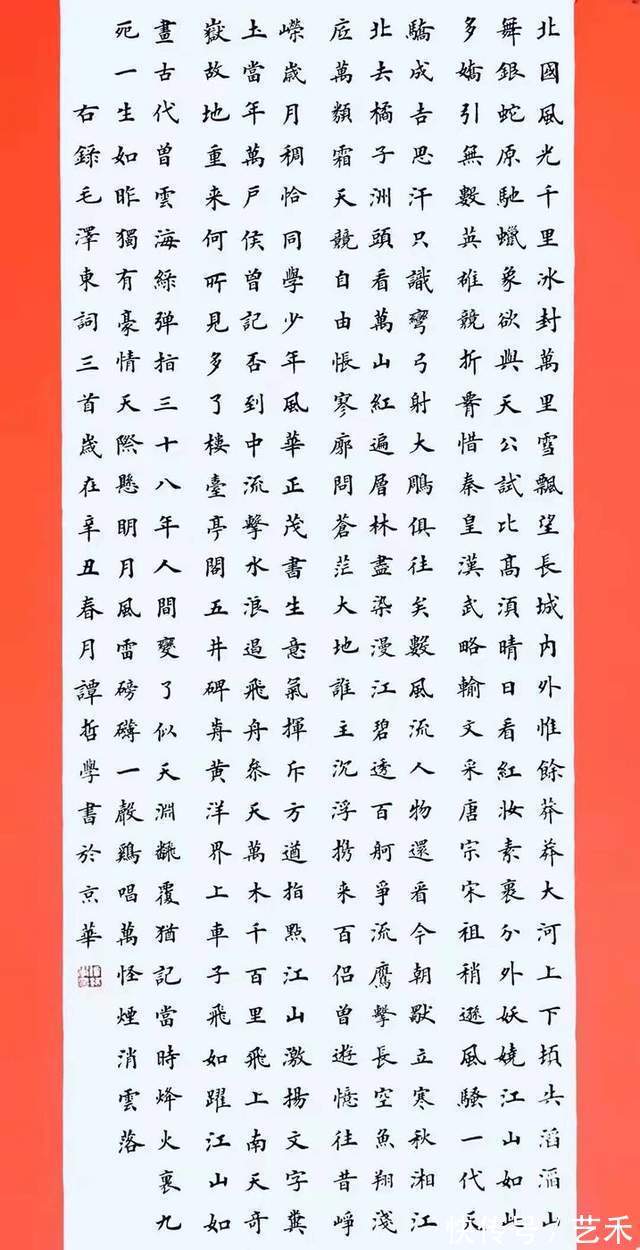 北國風光千里冰封萬里雪飄望長城內外惟餘莽莽大河上下頓失滔滔山
舞銀蛇原馳蠟象欲與天公試比高須晴日看紅妝素裹分外妖嬈江山如此
多嬌引無數英雄競折腰惜秦皇漢武略輸文采唐宗宋祖稍遜風騷一代天
驕成吉思汗只識彎弓射大鵰俱往矣數風流人物還看今朝獨立寒秋湘江
北去橘子洲頭看萬山紅遍層林盡染漫江碧透百舸爭流鷹擊長空魚翔淺
底萬類霜天競自由悵寥廓問蒼茫大地誰主沉浮携来百侶曾遊憶往昔崢
嶸歲月稠恰同學少年風華正茂書生意氣揮斥方遒指點江山激揚文字糞
土當年萬戶侯曾記否到中流擊水浪遏飛舟參天萬木千百里飛上南天奇
嶽故地重来何所見多了樓臺亭閣五井碑前黃洋界上車子飛如躍江山如
畫古代曾雲海綠彈指三十八年人間變了似天淵翻覆猶記當時烽火裏九
死一生如昨獨有豪情天際懸明月風雷磅礴一聲鷄唱萬怪煙消雲落
右錄毛澤東詞三首歲在辛丑春月譚哲學書於京華
快传号/艺禾